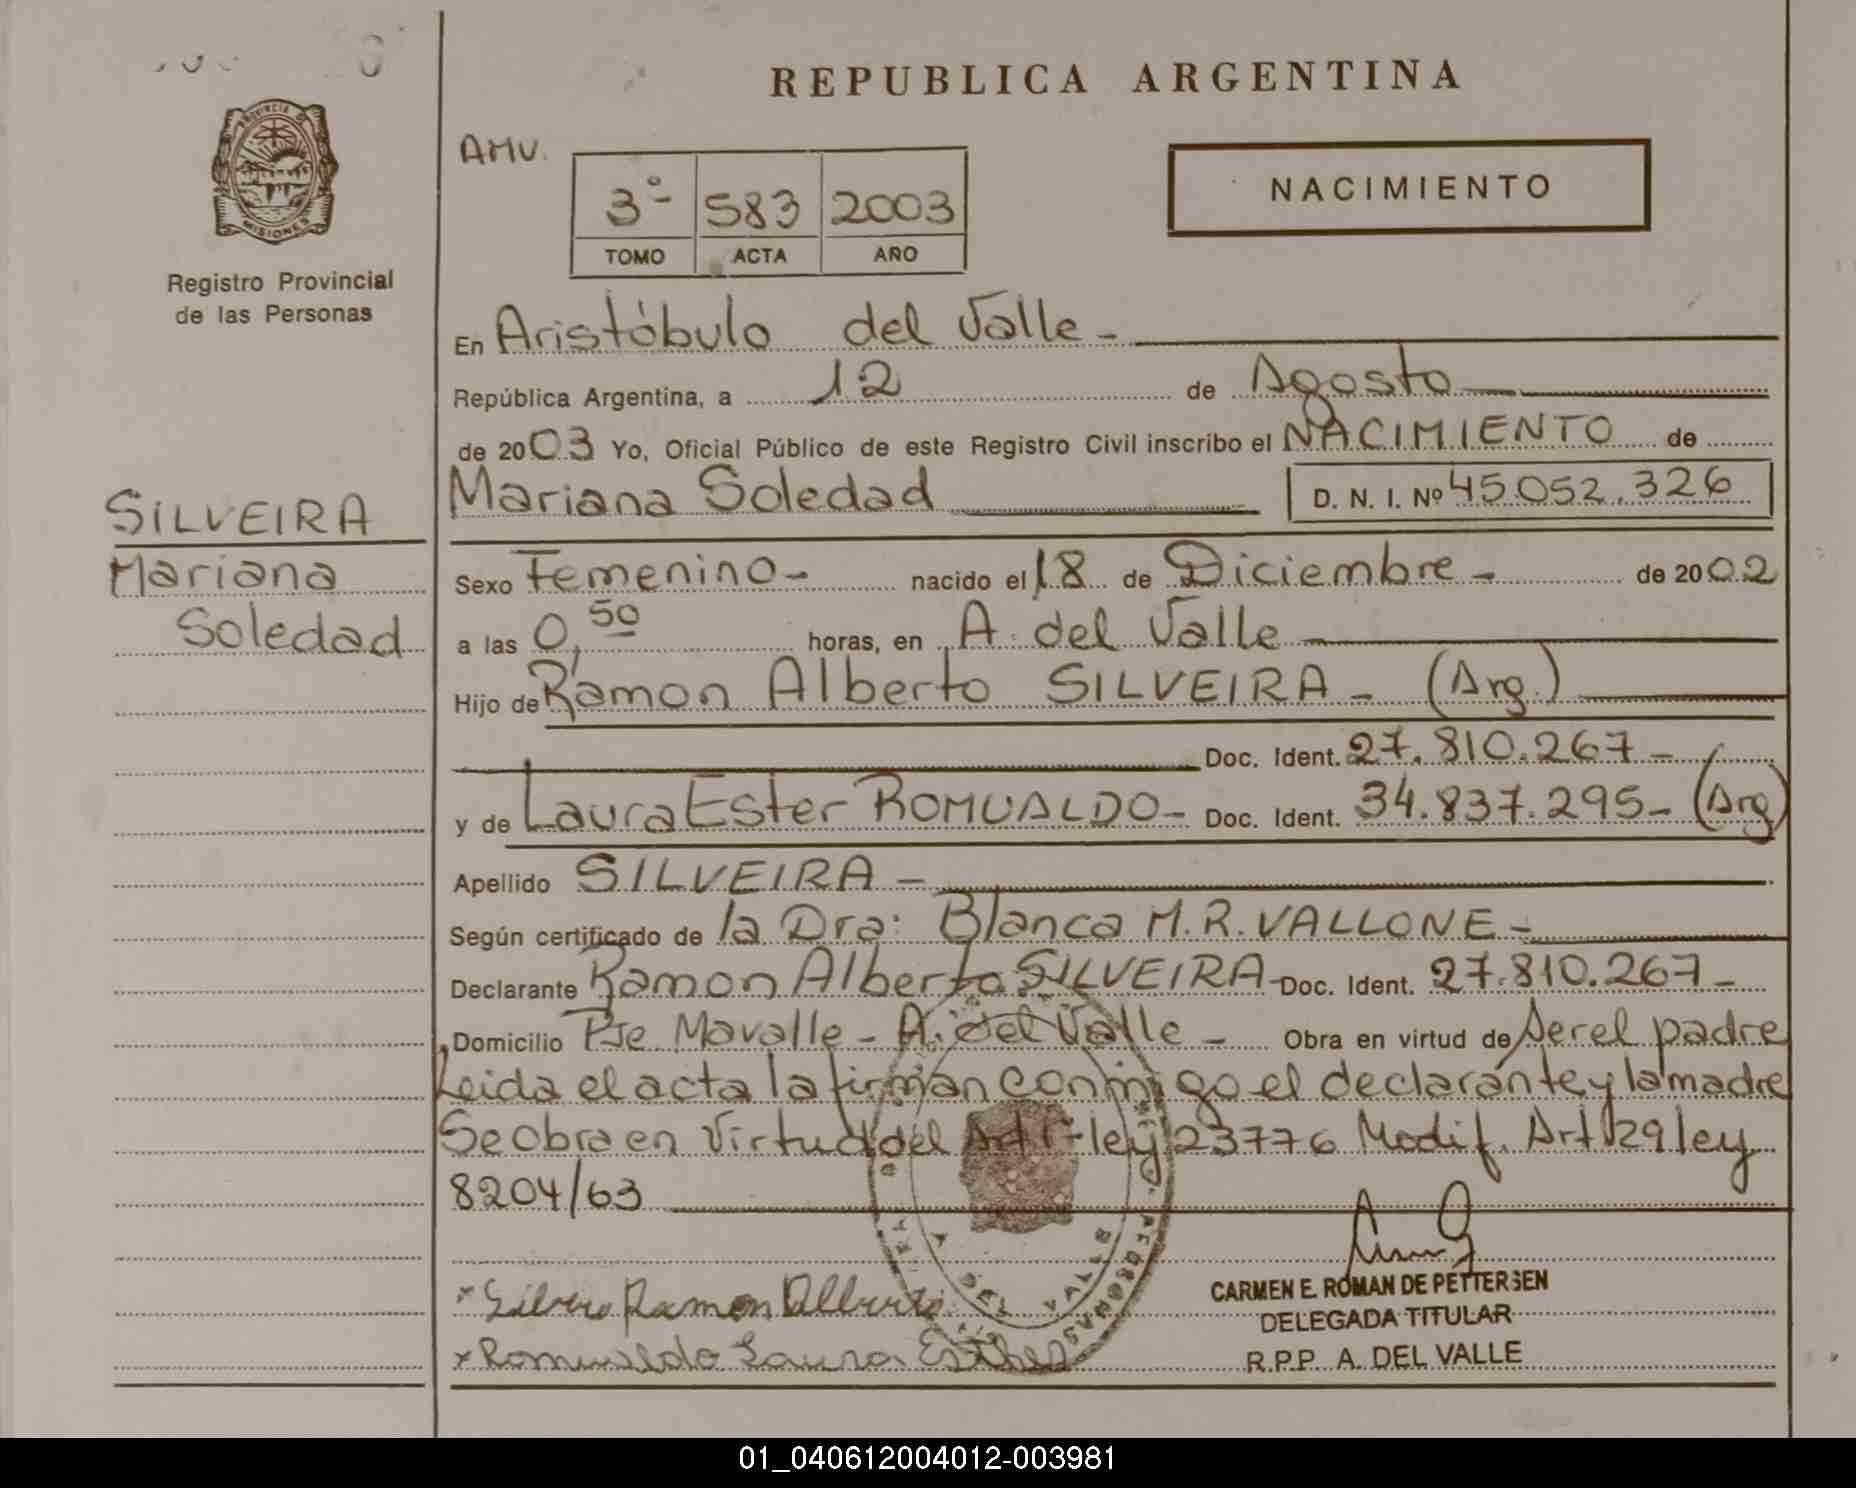 REPUBLICA ARGENTINA
PROVINCIA
MISIONES
Registro Provincial
de las Personas
AMV.
3º 583 2003
TOMO ACTA AÑO
NACIMIENTO
En Aristóbulo del Valle -
República Argentina, a 12 de Agosto
de 2003 Yo, Oficial Público de este Registro Civil inscribo el NACIMIENTO de
Mariana Soledad D. N. I. Nº 45.052.326
SILVEIRA
Mariana
Soledad
Sexo Femenino - nacido el 18 de Diciembre - de 2002
a las 0,50 horas, en A. del Valle
Hijo de Ramon Alberto SILVEIRA - (Arg.)
Doc. Ident. 27.810.267 -
y de Laura Ester ROMUALDO - Doc. Ident. 34.837.295 - (Arg)
Apellido SILVEIRA -
Según certificado de la Dra: Blanca M. R. VALLONE -
Declarante Ramon Alberto SILVEIRA - Doc. Ident. 27.810.267 -
Domicilio Pje Mavalle - A. del Valle - Obra en virtud de ser el padre
Leida el acta la firman conmigo el declarante y la madre
Se obra en Virtud del Art 1º ley 23776 Modif. Art 29 ley
8204/63
x Silveira Ramon Alberto
x Romualdo Laura Esther
CARMEN E. ROMAN DE PETTERSEN
DELEGADA TITULAR
R.P.P. A. DEL VALLE
01_040612004012-003981